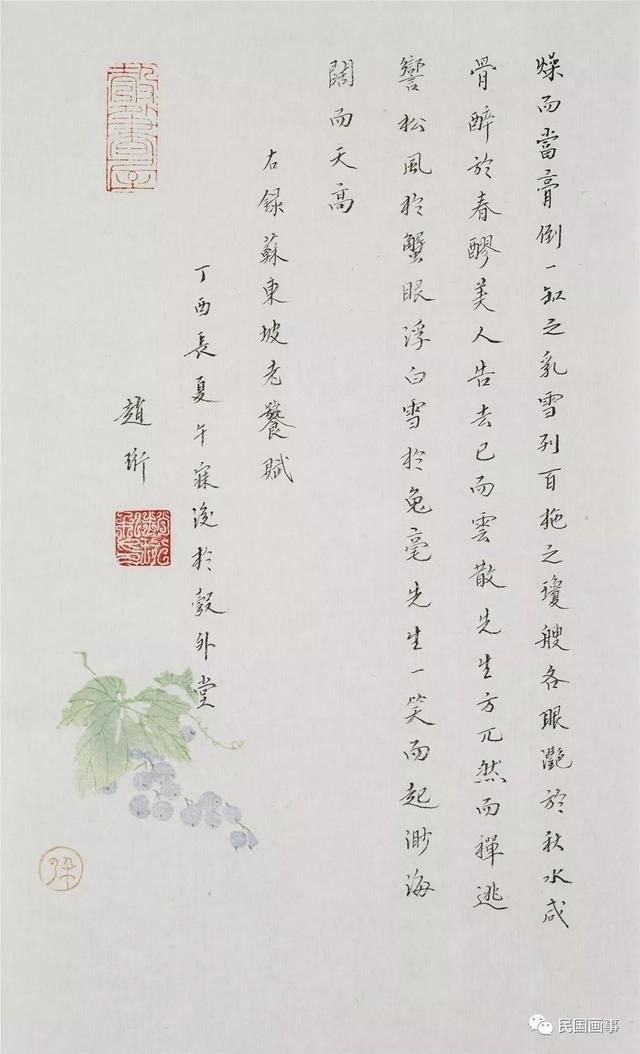 燥而當膏倒一缸之乳雪列百柂之瓊艘各眼灔於秋水咸
骨醉於春醪美人告去已而雲散先生方兀然而禪逃
響松風於蟹眼浮白雪於兔毫先生一笑而起渺海
闊而天高
右錄蘇東坡老饕賦
丁酉長夏午寐後於彀外堂
趙珩
民国画事